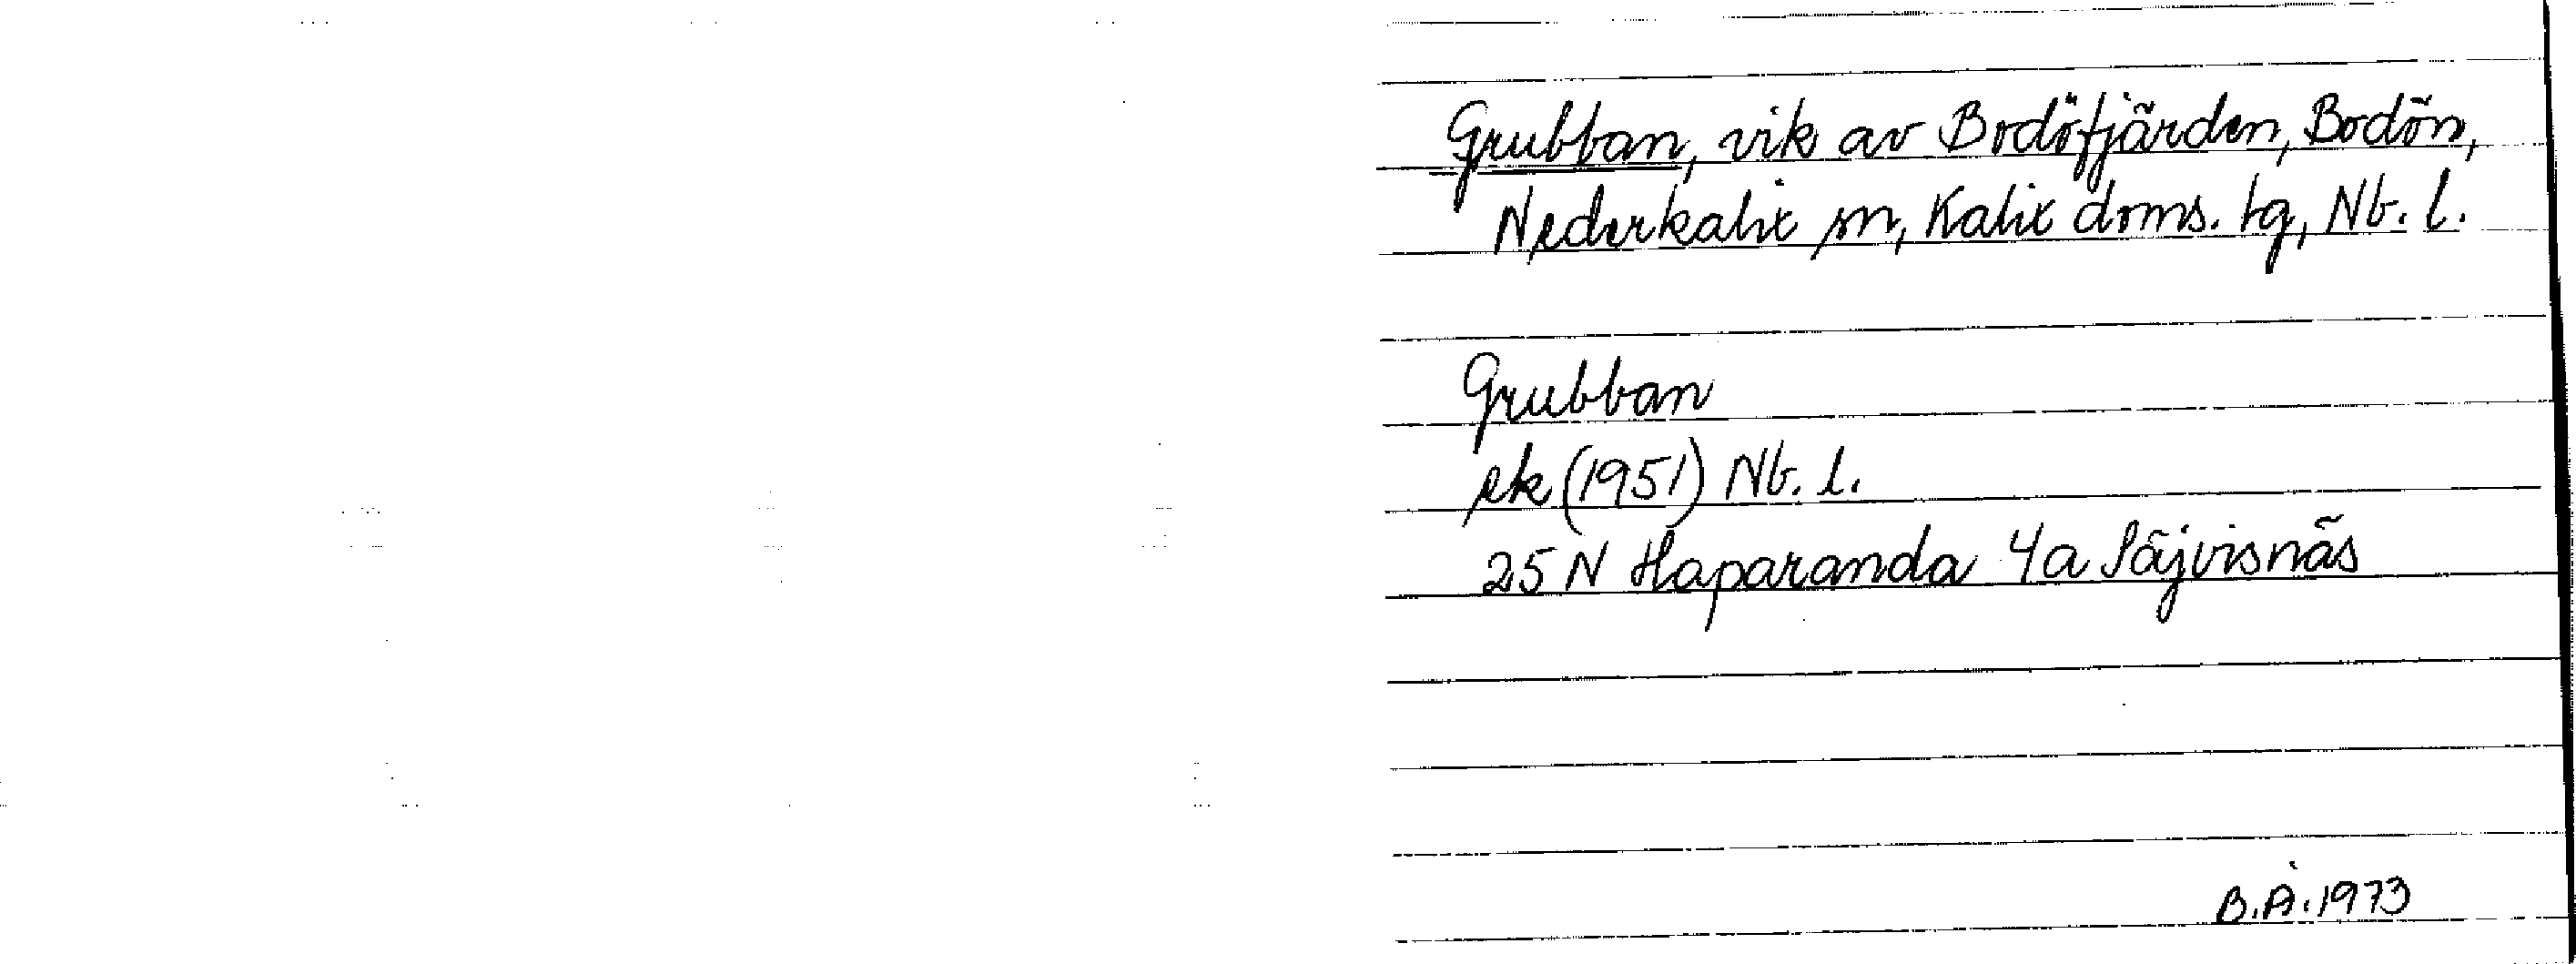 Grubban, vik av Bodöfjärden, Bodön,
Nederkalix sn, Kalix doms. tg, Nb. l.
Grubban
ek (1951) Nb. l.
25 N Haparanda 4a Säjvisnäs
B.Å. 1973